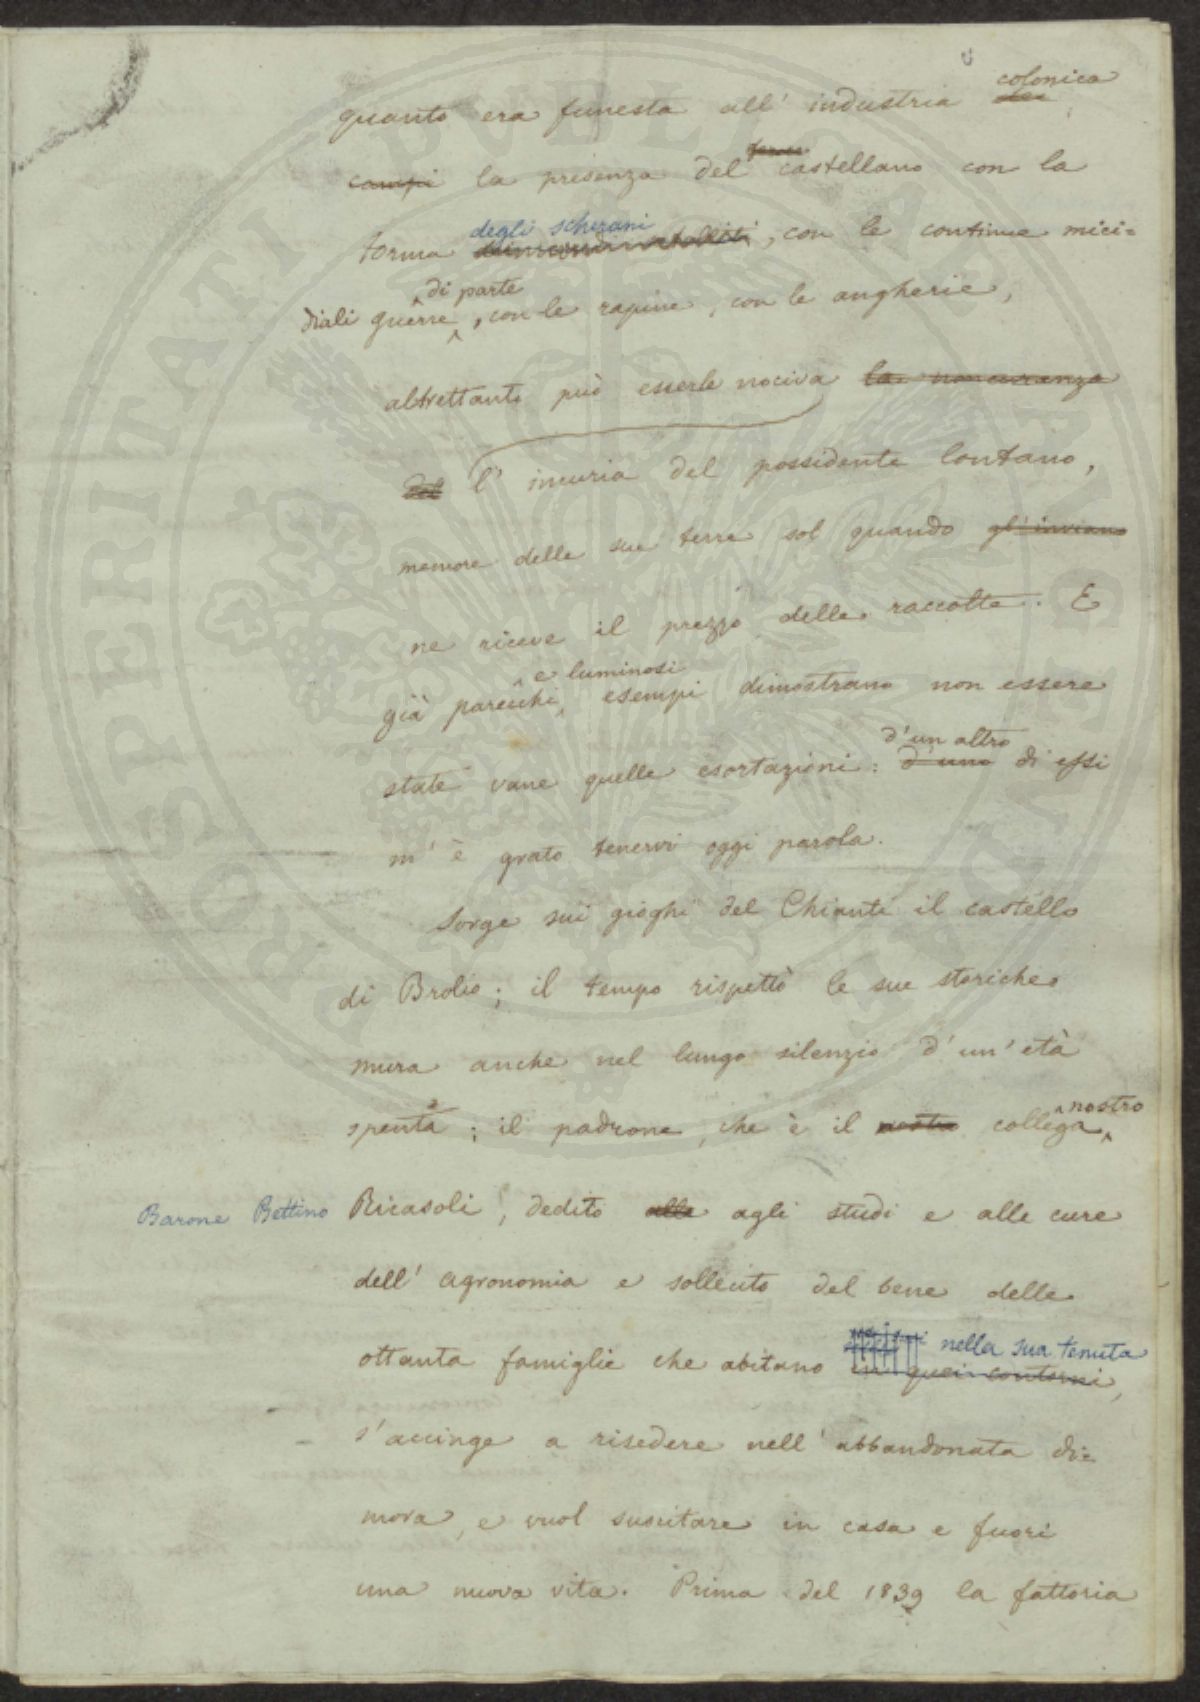 quanto era funesta all' industria colonica
dei
campi la presenza del castellano con la
torma degli scherani, con le continue mici=
diali guerre di parte, con le rapine, con le angherie,
altrettanto può esserle nociva la noncuranza
del l' incuria del possidente lontano,
memore delle sue terre sol quando gl' inviano
ne riceve il prezzo delle raccolte. E
già parecchi e luminosi esempi dimostrano non essere
state vane quelle esortazioni: d'un altro d'uno di essi
m' è grato tenervi oggi parola.
Sorge sui gioghi del Chianti il castello
di Brolio; il tempo rispettò le sue storiche
mura anche nel lungo silenzio d'un' età
spenta; il padrone, che è il nostro collega nostro
Barone Bettino Ricasoli, dedito alle agli studi e alle cure
dell' agronomia e sollecito del bene delle
ottanta famiglie che abitano nella sua tenuta in quei contorni,
s'accinge a risedere nell' abbandonata di=
mora, e vuol suscitare in casa e fuori
una nuova vita. Prima del 1839 la fattoria
PROSPERITATI PVBLICAE AVGENDAE